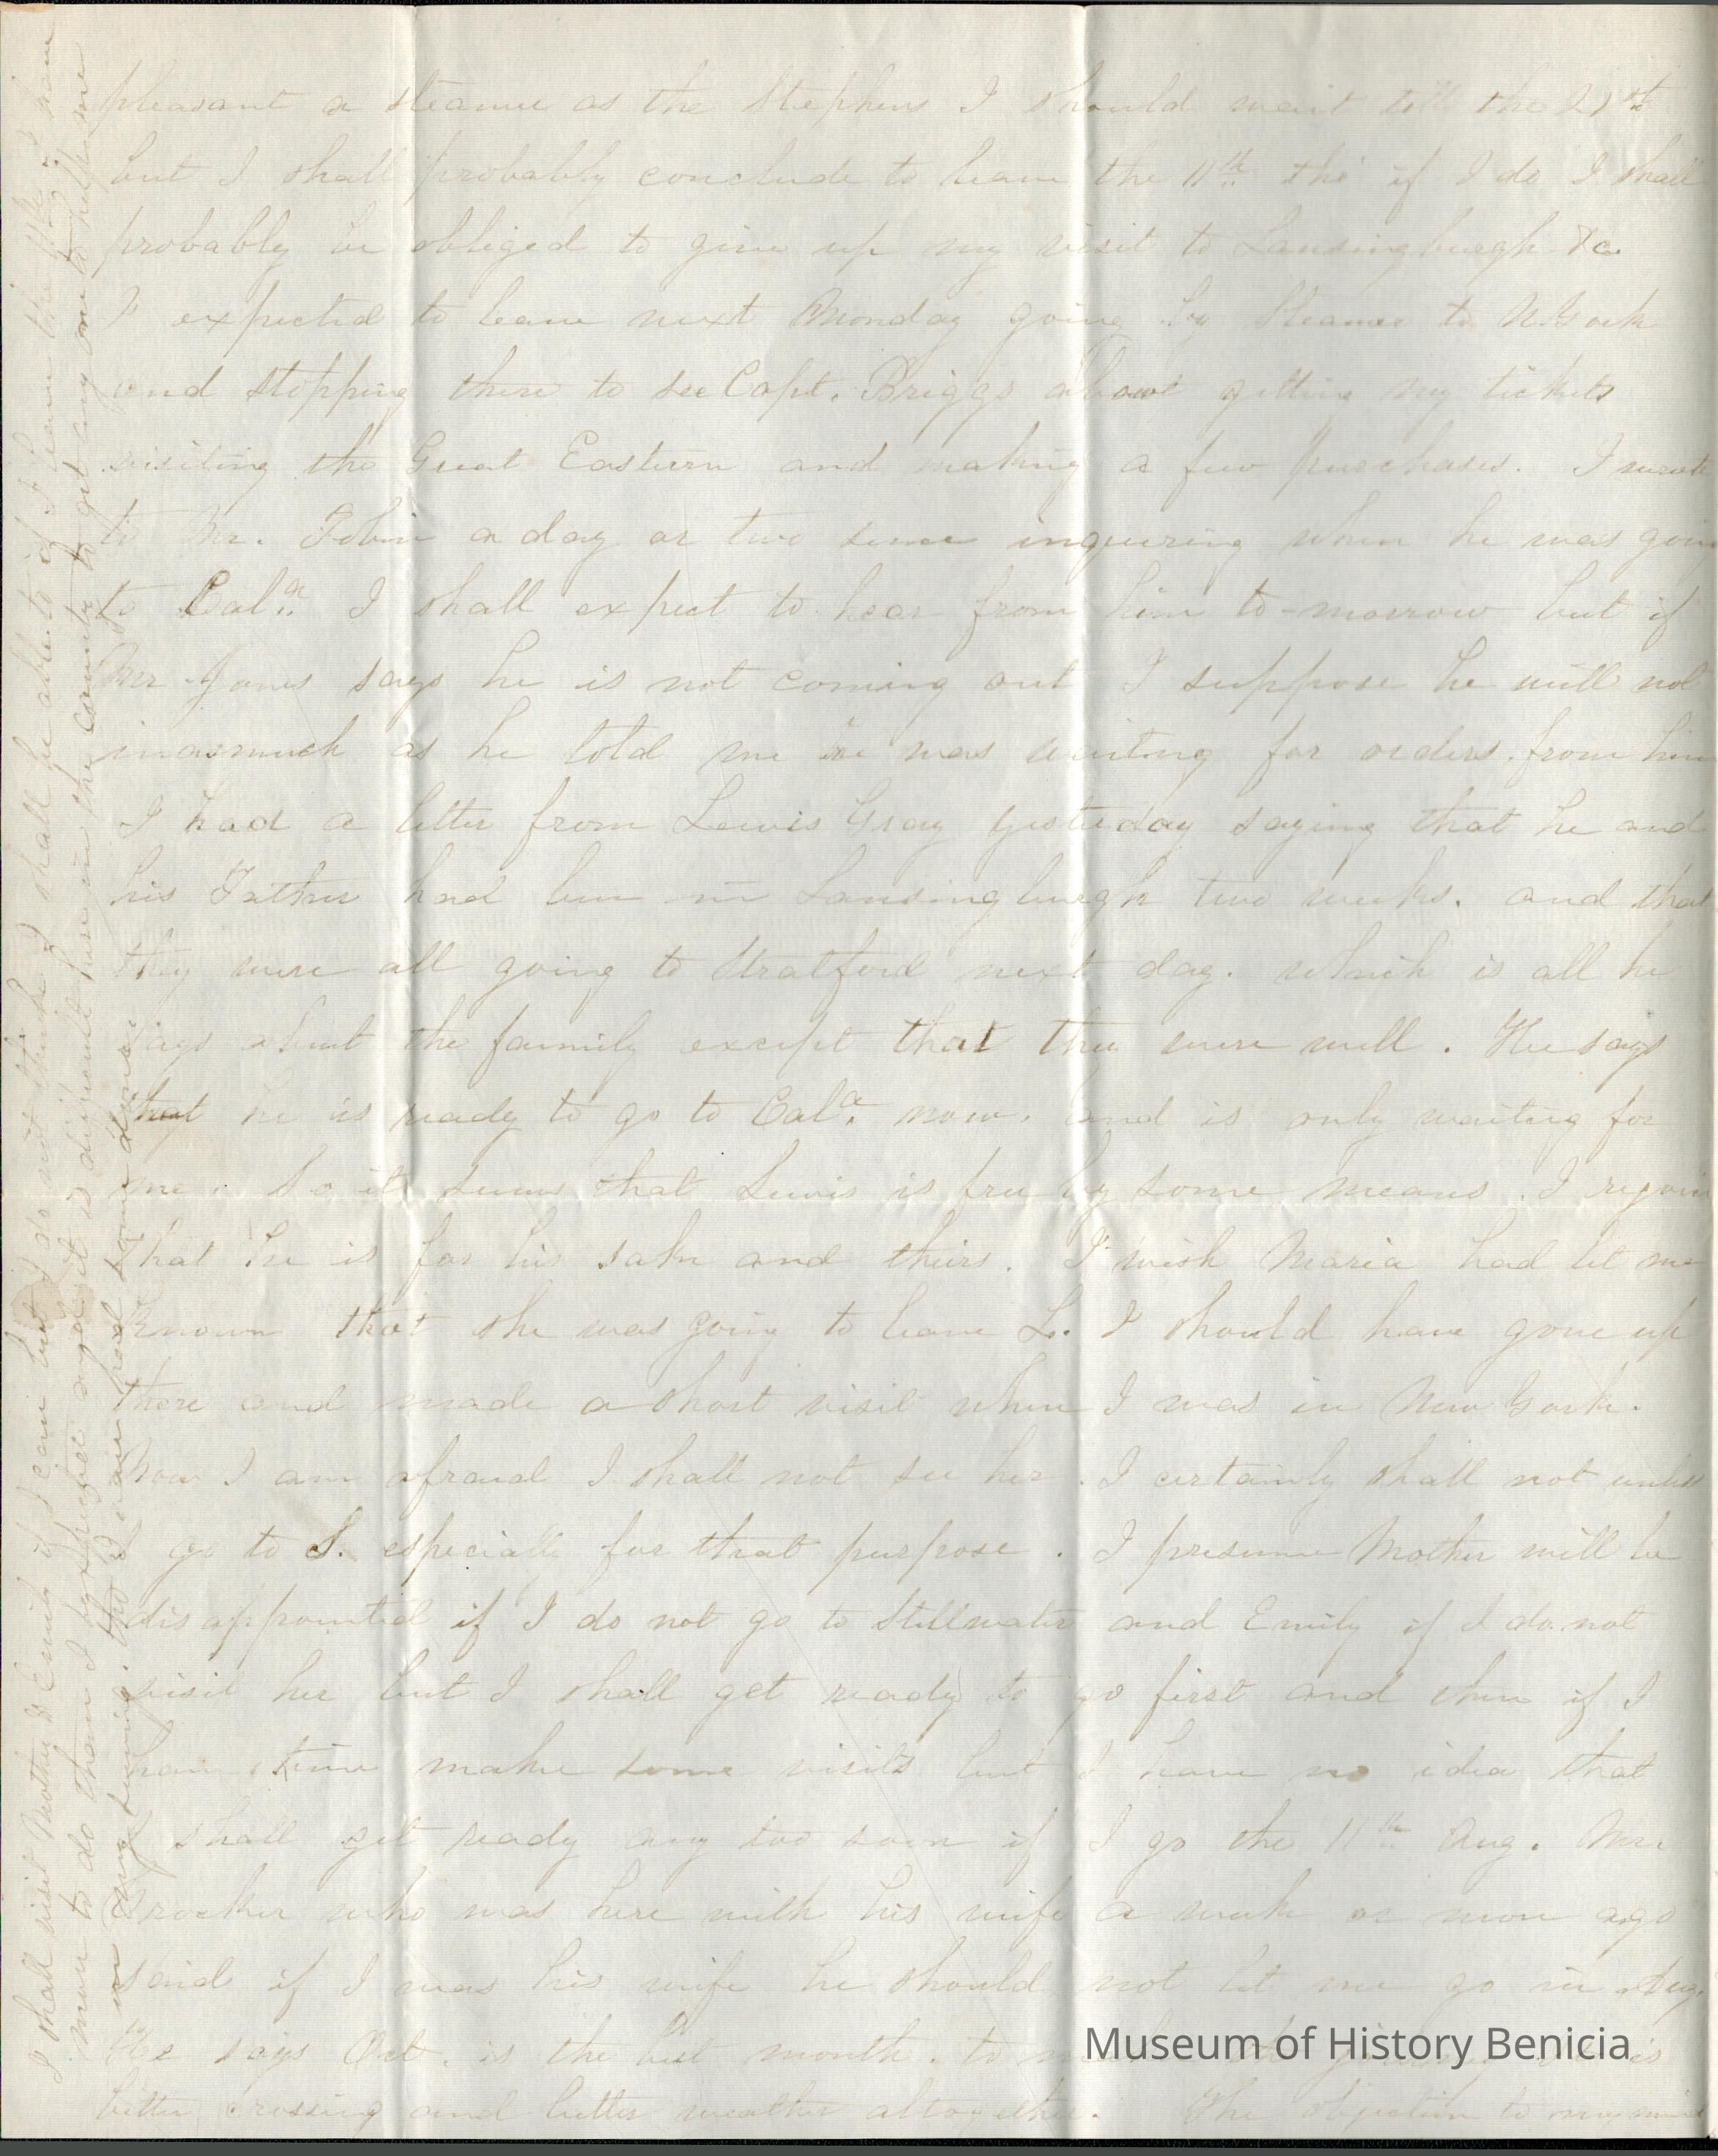 pleasant a steamer as the Stephens I should wait till the 21st
but I shall probably conclude to leave the 11th tho' if I do I shall
probably be obliged to give up my visit to Lansingburgh &c
I expected to leave next Monday going by Steamer to N.York
and stopping there to see Capt. Briggs about getting my tickets
visiting the Great Eastern and making a few purchases. I wrote
to Mr. Tobin a day or two since inquiring when he was going
to Cala. I shall expect to hear from him to-morrow but if
Mr Jones says he is not coming out I suppose he will not
inasmuch as he told me he was waiting for orders from him
I had a letter from Lewis Gray yesterday saying that he and
his Father had been in Lansingburgh two weeks. and that
they were all going to Stratford next day. which is all he
says about the family except that they were well. He says
that he is ready to go to Cala. now. and is only waiting for
me. So it seems that Lewis is free by some means. I rejoice
that he is for his sake and theirs. I wish Maria had let me
known that she was going to leave L. I should have gone up
there and made a short visit when I was in New York.
Now I am afraid I shall not see her. I certainly shall not unless
I go to S. especially for that purpose. I presume Mother will be
disappointed if I do not go to Stillwater and Emily if I do not
visit her but I shall get ready to go first and then if I
have time make some visits but I have no idea that
I shall get ready any too soon if I go the 11th Aug. Mr.
Crocker who was here with his wife a week or more ago
said if I was his wife he should not let me go in Aug.
He says Oct. is the best month. to is
better crossing and better weather altogether. The objection to my mind
I shall visit Mother & Emily if I can but I do not think I shall be able to if I leave the 11th. I have
more to do than I expected and it is difficult here in the country to get any one to help me
in any sewing. tho' I have had some done.
Museum of History Benicia